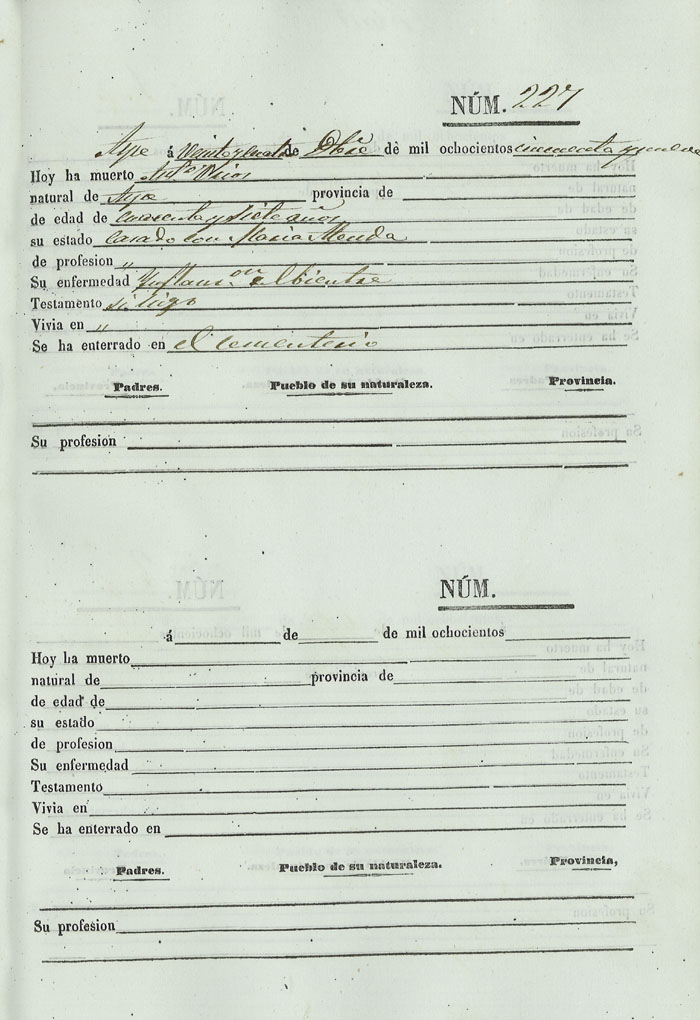 NÚM. 227
Aspe á Veinte y cuatro de Obre de mil ochocientos cincuenta y nueve
Hoy ha muerto Anto Rios
natural de Aspe provincia de
de edad de cuarenta y siete años
su estado casado con Maria
de profesion "
Su enfermedad el bientre
Testamento se hizo
Vivia en "
Se ha enterrado en el Cementerio
Padres. Pueblo de su naturaleza. Provincia.
Su profesion
NÚM.
á de de mil ochocientos
Hoy ha muerto
natural de provincia de
de edad de
su estado
de profesion
Su enfermedad
Testamento
Vivia en
Se ha enterrado en
Padres. Pueblo de su naturaleza. Provincia,
Su profesion